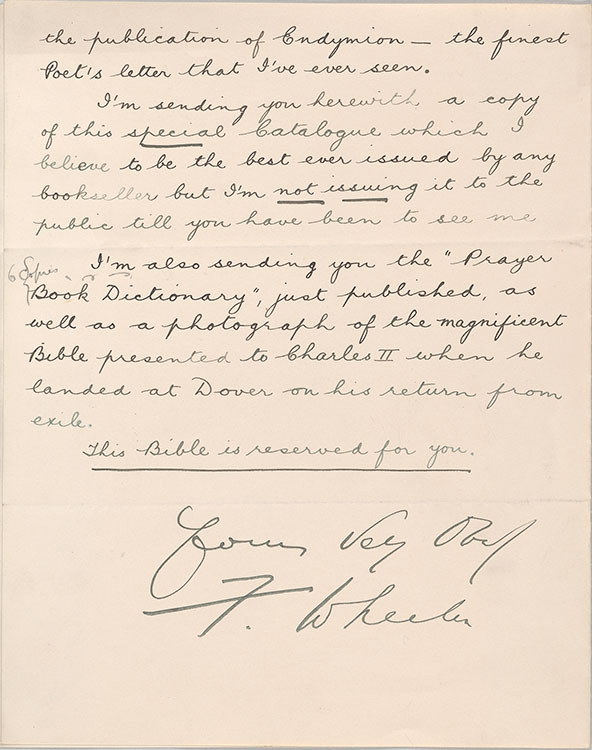 the publication of Endymion — the finest
Poet's letter that I've ever seen.
I'm sending you herewith a copy
of this special Catalogue which I
believe to be the best ever issued by any
bookseller but I'm not issuing it to the
public till you have been to see me
6 Copies
I'm also sending you the "Prayer
Book Dictionary", just published, as
well as a photograph of the magnificent
Bible presented to Charles II when he
landed at Dover on his return from
exile.
This Bible is reserved for you.
Yours Very
F. Wheeler